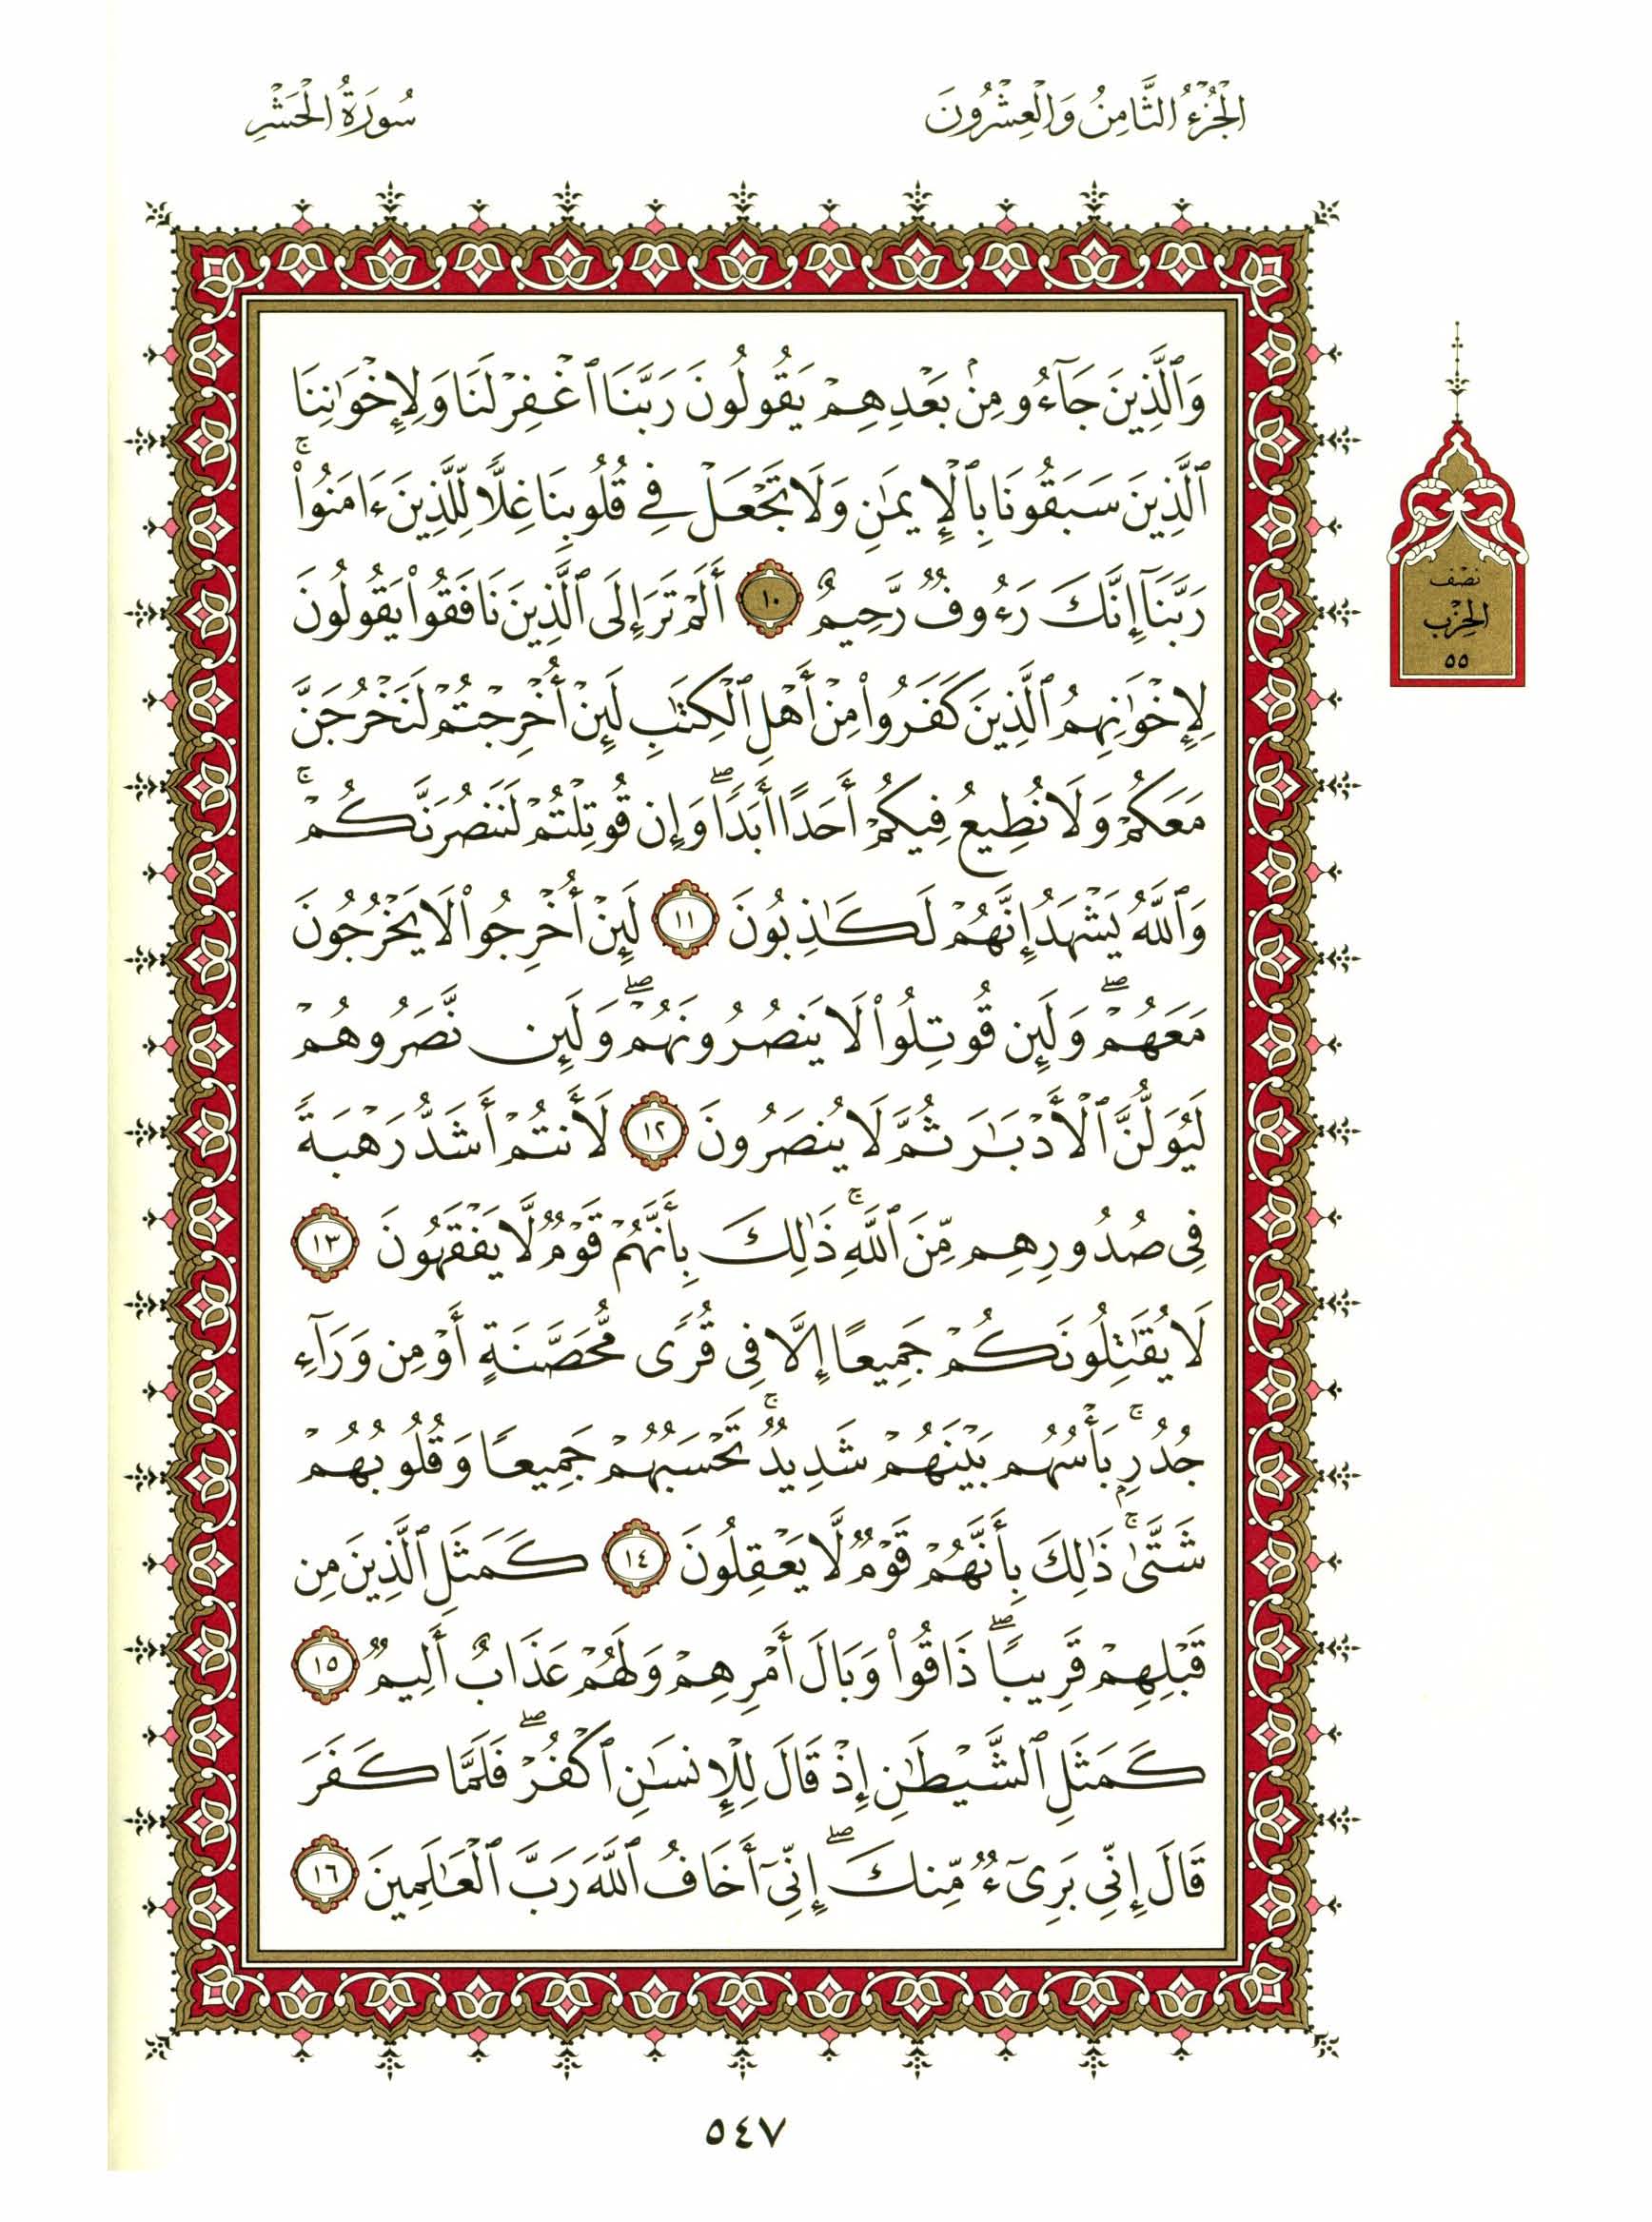 الْجُزْءُ الثَّامِنُ وَالْعِشْرُونَ
سُورَةُ الْحَشْرِ
وَٱلَّذِينَ جَآءُو مِنۢ بَعْدِهِمْ يَقُولُونَ رَبَّنَا ٱغْفِرْ لَنَا وَلِإِخْوَٰنِنَا
ٱلَّذِينَ سَبَقُونَا بِٱلْإِيمَٰنِ وَلَا تَجْعَلْ فِي قُلُوبِنَا غِلًّا لِّلَّذِينَ ءَامَنُوا۟ۚ
رَبَّنَآ إِنَّكَ رَءُوفٌ رَّحِيمٌ ١٠ أَلَمْ تَرَ إِلَى ٱلَّذِينَ نَافَقُوا۟ يَقُولُونَ
لِإِخْوَٰنِهِمُ ٱلَّذِينَ كَفَرُوا۟ مِنْ أَهْلِ ٱلْكِتَٰبِ لَئِنْ أُخْرِجْتُمْ لَنَخْرُجَنَّ
مَعَكُمْ وَلَا نُطِيعُ فِيكُمْ أَحَدًا أَبَدًاۖ وَإِن قُوتِلْتُمْ لَنَنصُرَنَّكُمْۚ
وَٱللَّهُ يَشْهَدُ إِنَّهُمْ لَكَٰذِبُونَ ١١ لَئِنْ أُخْرِجُوا۟ لَا يَخْرُجُونَ
مَعَهُمْۖ وَلَئِن قُوتِلُوا۟ لَا يَنصُرُونَهُمْۖ وَلَئِن نَّصَرُوهُمْ
لَيُوَلُّنَّ ٱلْأَدْبَٰرَ ثُمَّ لَا يُنصَرُونَ ١٢ لَأَنتُمْ أَشَدُّ رَهْبَةً
فِى صُدُورِهِم مِّنَ ٱللَّهِۚ ذَٰلِكَ بِأَنَّهُمْ قَوْمٌ لَّا يَفْقَهُونَ ١٣
لَا يُقَٰتِلُونَكُمْ جَمِيعًا إِلَّا فِى قُرًى مُّحَصَّنَةٍ أَوْ مِن وَرَآءِ
جُدُرٍۭۚ بَأْسُهُم بَيْنَهُمْ شَدِيدٌۚ تَحْسَبُهُمْ جَمِيعًا وَقُلُوبُهُمْ
شَتَّىٰۚ ذَٰلِكَ بِأَنَّهُمْ قَوْمٌ لَّا يَعْقِلُونَ ١٤ كَمَثَلِ ٱلَّذِينَ مِن
قَبْلِهِمْ قَرِيبًاۖ ذَاقُوا۟ وَبَالَ أَمْرِهِمْ وَلَهُمْ عَذَابٌ أَلِيمٌ ١٥
كَمَثَلِ ٱلشَّيْطَٰنِ إِذْ قَالَ لِلْإِنسَٰنِ ٱكْفُرْۖ فَلَمَّا كَفَرَ
قَالَ إِنِّى بَرِىٓءٌ مِّنكَۖ إِنِّىٓ أَخَافُ ٱللَّهَ رَبَّ ٱلْعَٰلَمِينَ ١٦
نِصْف
الْحِزْب
٥٥
٥٤٧